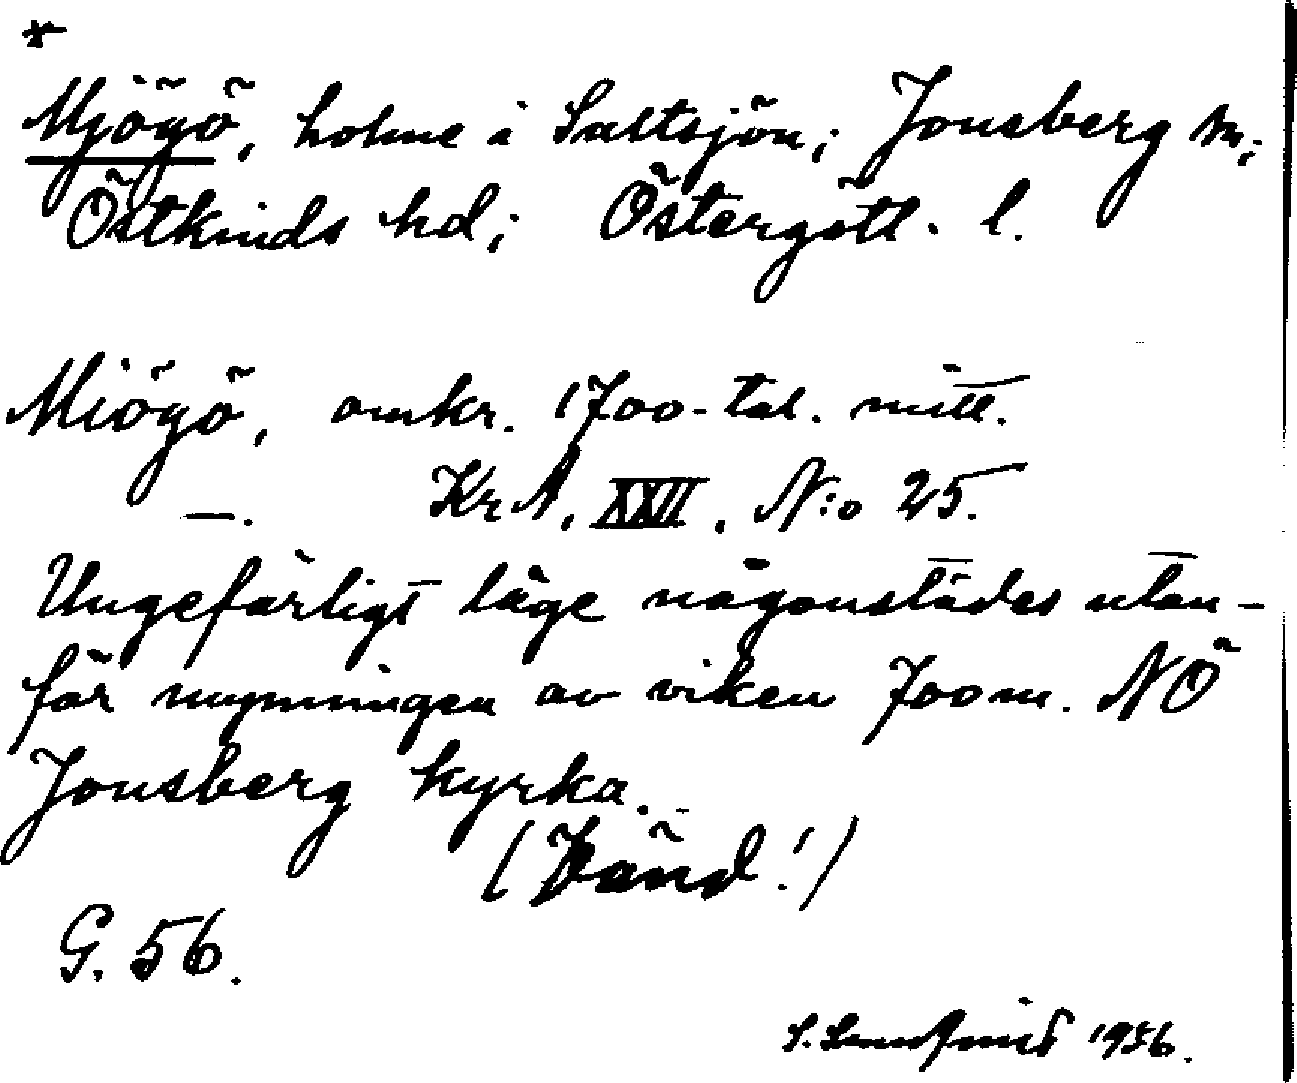 *
Mjögö, holme i Saltsjön; Jonsberg sn;
Östkinds hd; Östergötl. l.
Miögö, omkr. 1700-tal. mitt.
—. KrA, XXII, N:o 25.
Ungefärligt läge någonstädes utan-
för mynningen av viken 700 m. NÖ
Jonsberg kyrka.
(Vänd!)
G. 56.
S. 1956.